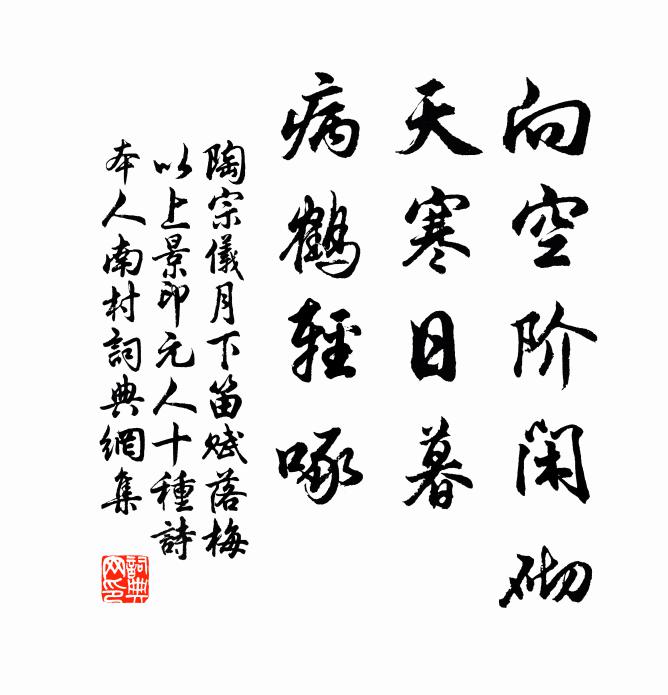 向空阶闲砌
天寒日暮
病鹤轻啄
陶宗儀月下笛赋落梅
以上景印元人十種詩
本人南村詞典網集
詞典
网印